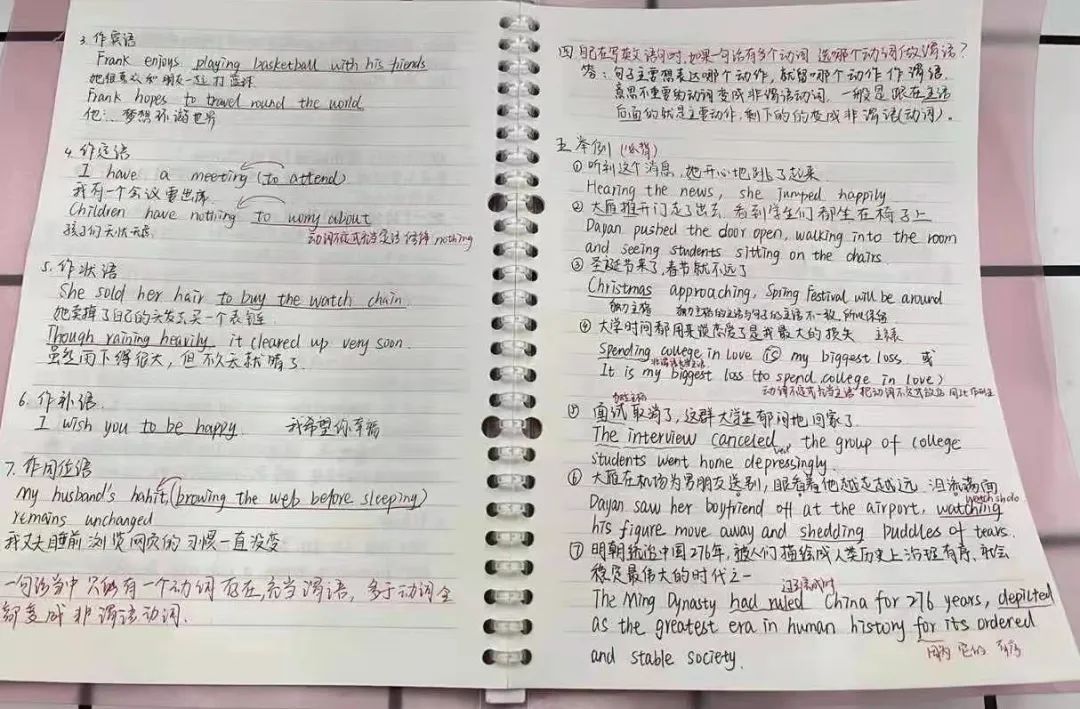 3. 作宾语
Frank enjoys playing basketball with his friends
她很喜欢和朋友一起打篮球
Frank hopes to travel round the world
他... 梦想环游世界
4. 作定语
I have a meeting (to attend)
我有一个会议要出席
Children have nothing to worry about
孩子们无忧无虑
动词不定式充当定语 修饰 nothing
5. 作状语
She sold her hair to buy the watch chain.
她卖掉了自己的头发买一个表链
Though raining heavily it cleared up very soon.
虽然雨下得很大，但不久天就晴了
6. 作补语.
I wish you to be happy. 我希望你幸福
7. 作同位语
My husband's habit, (browing the web before sleeping)
remains unchanged
我丈夫睡前浏览网页的习惯一直没变
一句话当中只能有一个动词存在,充当谓语, 多于动词全
部变成非谓语动词.
四. 自己在写英文语句时,如果一句话有多个动词 选哪个动词做谓语?
答: 句子主要想表达哪个动作, 就留哪个动作作谓语.
意思不重要的动词变成非谓语动词. 一般是跟在主语
后面的就是主要动作, 剩下的的变成非谓语(动词)。
五 举例
① 听到这个消息, 她开心地跳了起来
Hearing the news, she jumped happily
② 大雁推开门走了出去, 看到学生们都坐在椅子上
Dayan pushed the door open, walking into the room
and seeing students sitting on the chairs.
③ 圣诞节来了, 春节就不远了
Christmas approaching, Spring Festival will be around
独立主格 独立主格的主语与句子的主语不一致, 所以保留
④ 大学时间都用来谈恋爱了是我最大的损失 主系表
Spending college in love (is) my biggest loss. 或
非谓语充当主语
It is my biggest loss (to spend college in love)
动词不定式充当主语 把动词不定式放后 用it作形主
独立主格
⑤ 面试取消了, 这群大学生郁闷地回家了
The interview canceled, the group of college
students went home depressingly.
⑥ 大雁在机场为男朋友送别, 眼看着他越走越远 泪流满面
watch sb do
Dayan saw her boyfriend off at the airport, watching
his figure move away and shedding puddles of tears.
⑦ 明朝统治中国276年, 被人们描绘成人类历史上治理有序, 社会
稳定最伟大的时代之一
过去完成时
The Ming Dynasty had ruled China for 276 years, depicted
as the greatest era in human history for its ordered
and stable society.
因为 它的